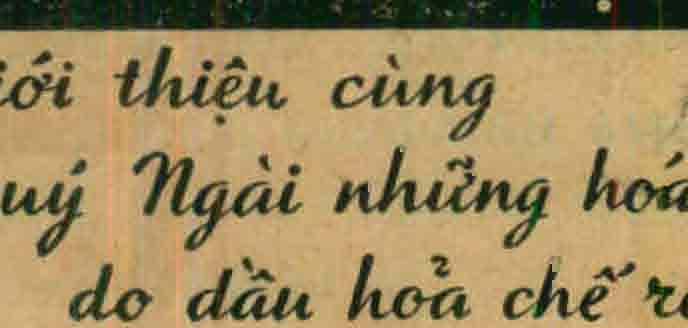 iới thiệu cùng
uý Ngài những hoá
do dầu hoả chế r